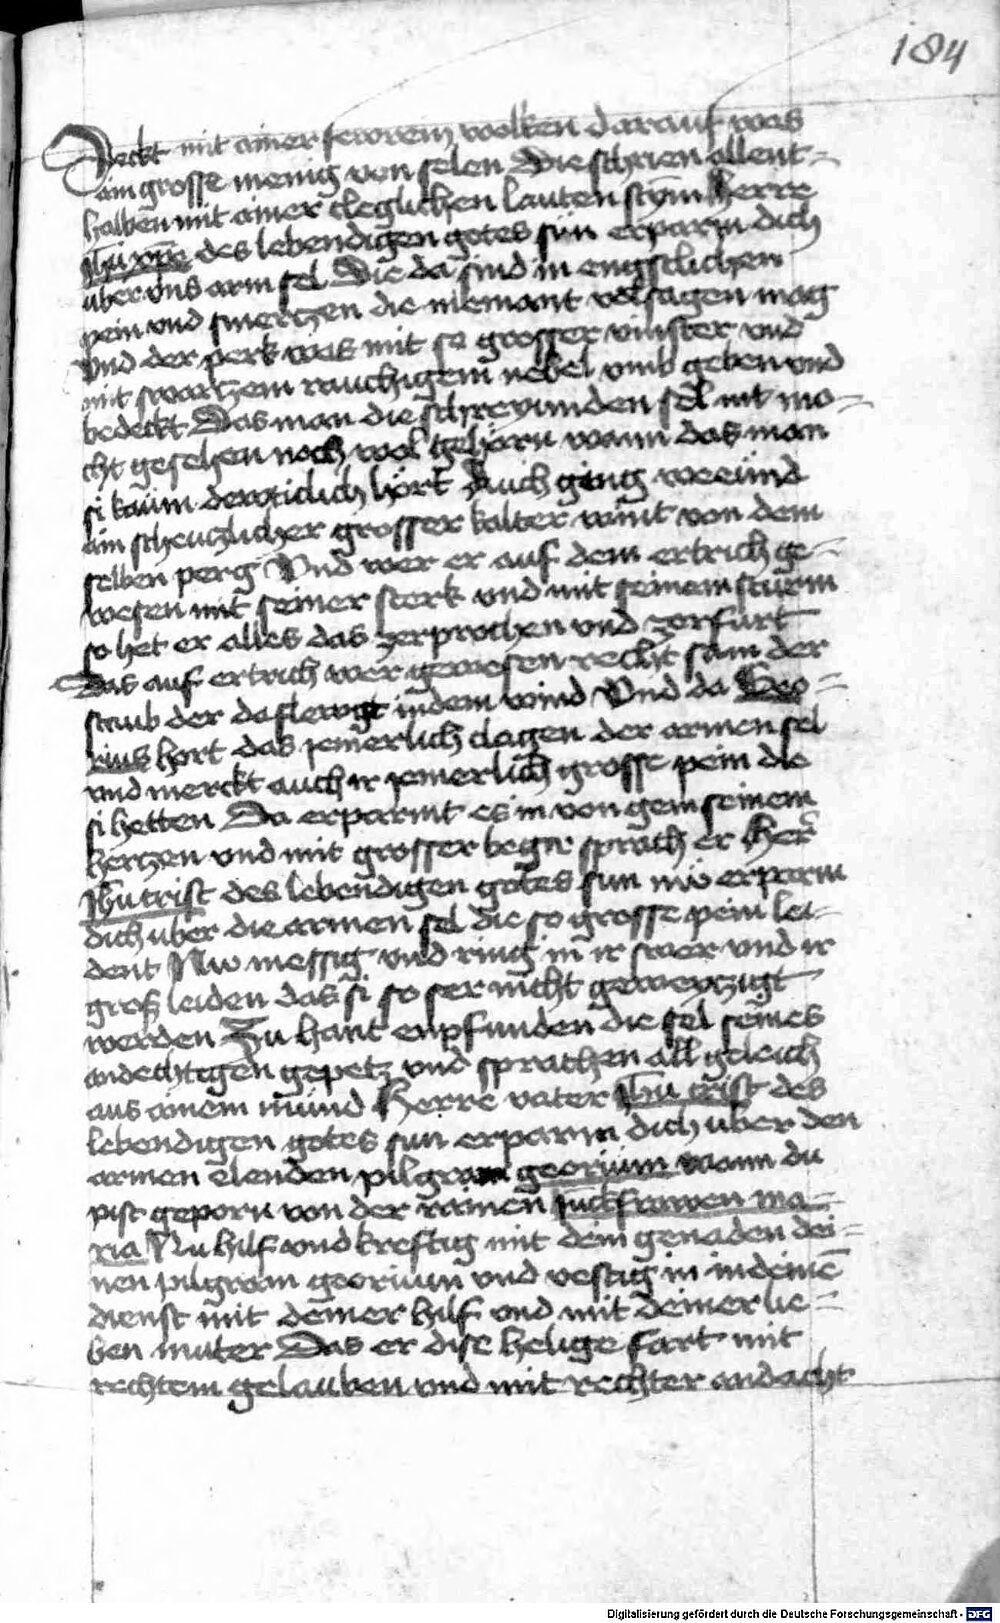 184
Deckt mit ainer fewrem wolken darauf was
ain grosse menig von selen Die schrien allent=
halben mit ainer cleglichen lauten stym Herre
Jhu xpe des lebendigen gotes sun erparm dich
uber uns arm sel Die da sind in engstlichen
pein und smertzen die niemant volsagen mag
Und der perk was mit so grosser vinster und
mit swartzem rauchigem nebel umb geben und
bedeckt Das man die schreyunden sel nit mo=
cht gesehen noch wol gehorn wann das man
si kaum dewtlich hort Auch ging
ain scheuczlicher grosser kalter wint von dem
selben perg Und wer er auf dem ertrich ge=
wesen mit seiner sterk und mit seinem sturm
so het er alles das zerprochen und zerfurt
Das auf ertrich wer gewesen recht sam der
staub der da flewgt in dem wind Und da Geo=
rius hort das jemerlich clagen der armen sel
und merckt auch ir jemerlich grosse pein die
si hetten Da erparmt es in von seinem
hertzen und mit grosser begir sprach er Her
Jhu crist des lebendigen gotes sun nw erparm
dich uber die armen sel die so grosse pein lei=
dent Nw messig und ring in ir swer und ir
groß leiden das si so ser nicht geweyczigt
werden Zu hant enpfunden die sel seines
andechtigen gepetz und sprachen all geleich
aus ainem mund Herre vater Jhu crist des
lebendigen gotes sun erparm dich uber den
armen elenden pilgram georium wann du
pist geporn von der rainen Juckfrawen ma=
ria Nu hilf und kreftig mit dein genaden dei=
nen pilgram georium und vestig in in deinē
dienst mit deiner hilf und mit deiner lie=
ben muter Das er dise heilige fart mit
rechtem gelauben und mit rechter andacht
Digitalisierung gefördert durch die Deutsche Forschungsgemeinschaft - DFG